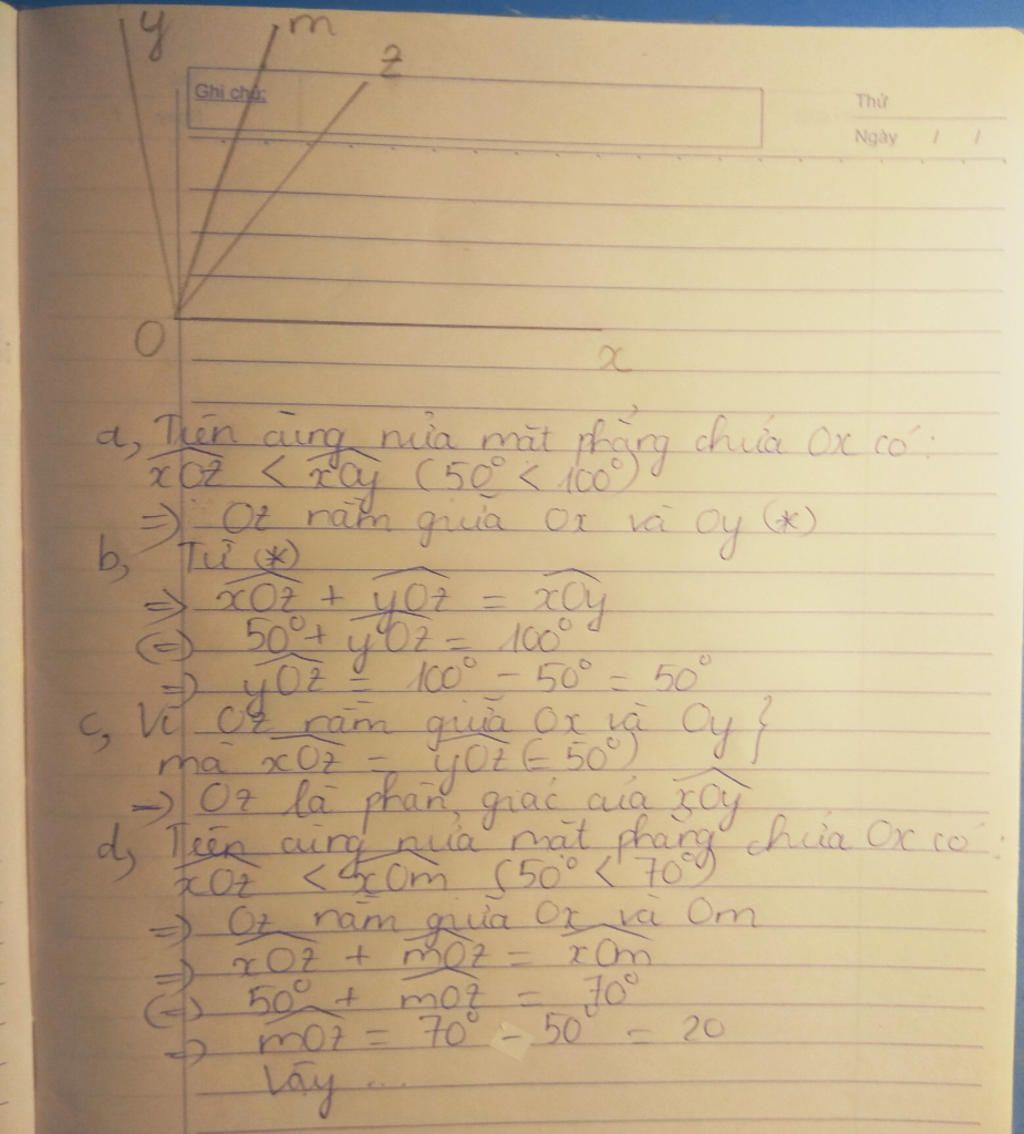 y m z
Ghi chú:
Thứ
Ngày / /
O
x
a, Trên cùng nửa mặt phẳng chứa Ox có:
xOz < xOy (50° < 100°)
=> Oz nằm giữa Ox và Oy (*)
b, Từ (*)
=> xOz + yOz = xOy
(=) 50° + yOz = 100°
=> yOz = 100° - 50° = 50°
c, Vì Oz nằm giữa Ox và Oy }
mà xOz = yOz (= 50°)
=> Oz là phân giác của xOy
d, Trên cùng nửa mặt phẳng chứa Ox có:
xOz < xOm (50° < 70°)
=> Oz nằm giữa Ox và Om
=> xOz + mOz = xOm
(=) 50° + mOz = 70°
=> mOz = 70° - 50° = 20
Vậy ...